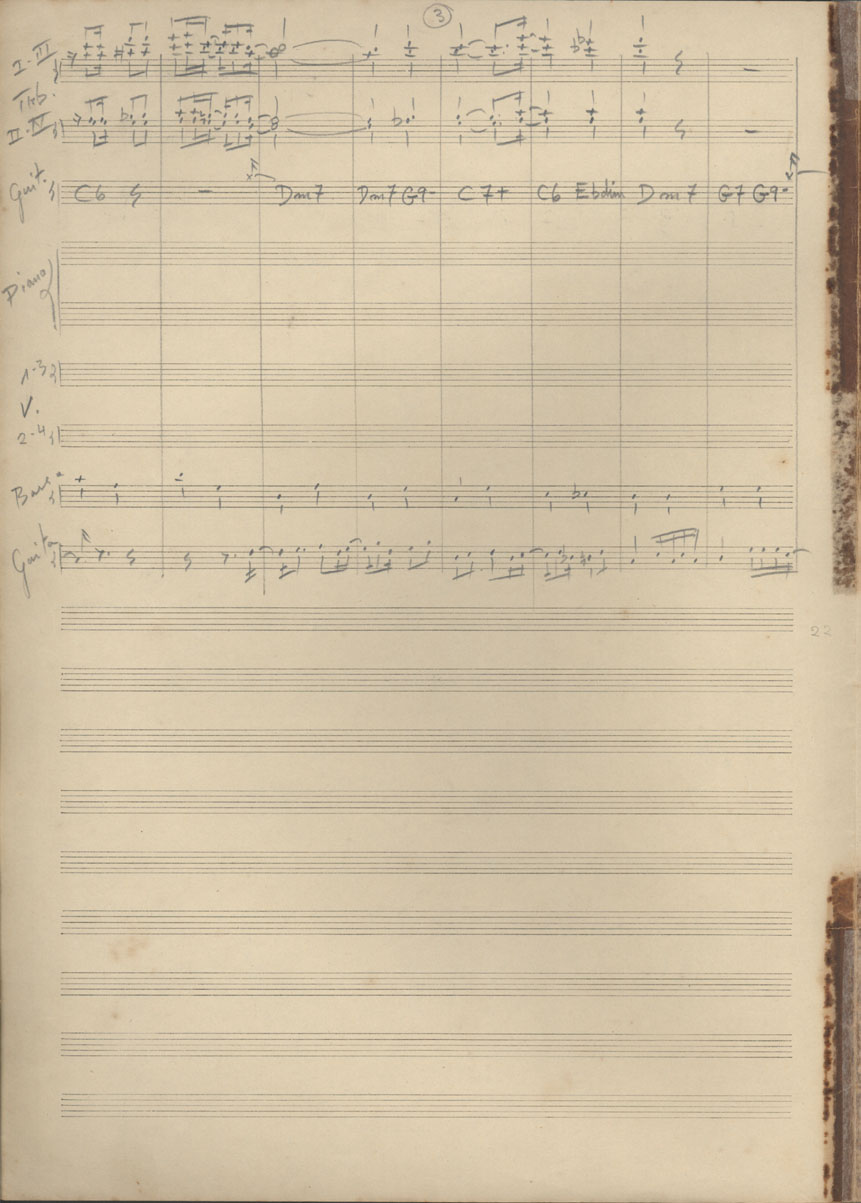 3
I-III
Trb.
II-IV
Guit. C6 Dm7 Dm7 G9- C7+ C6 Ebdim Dm7 G7 G9-
Piano
1-3
V.
2-4
22